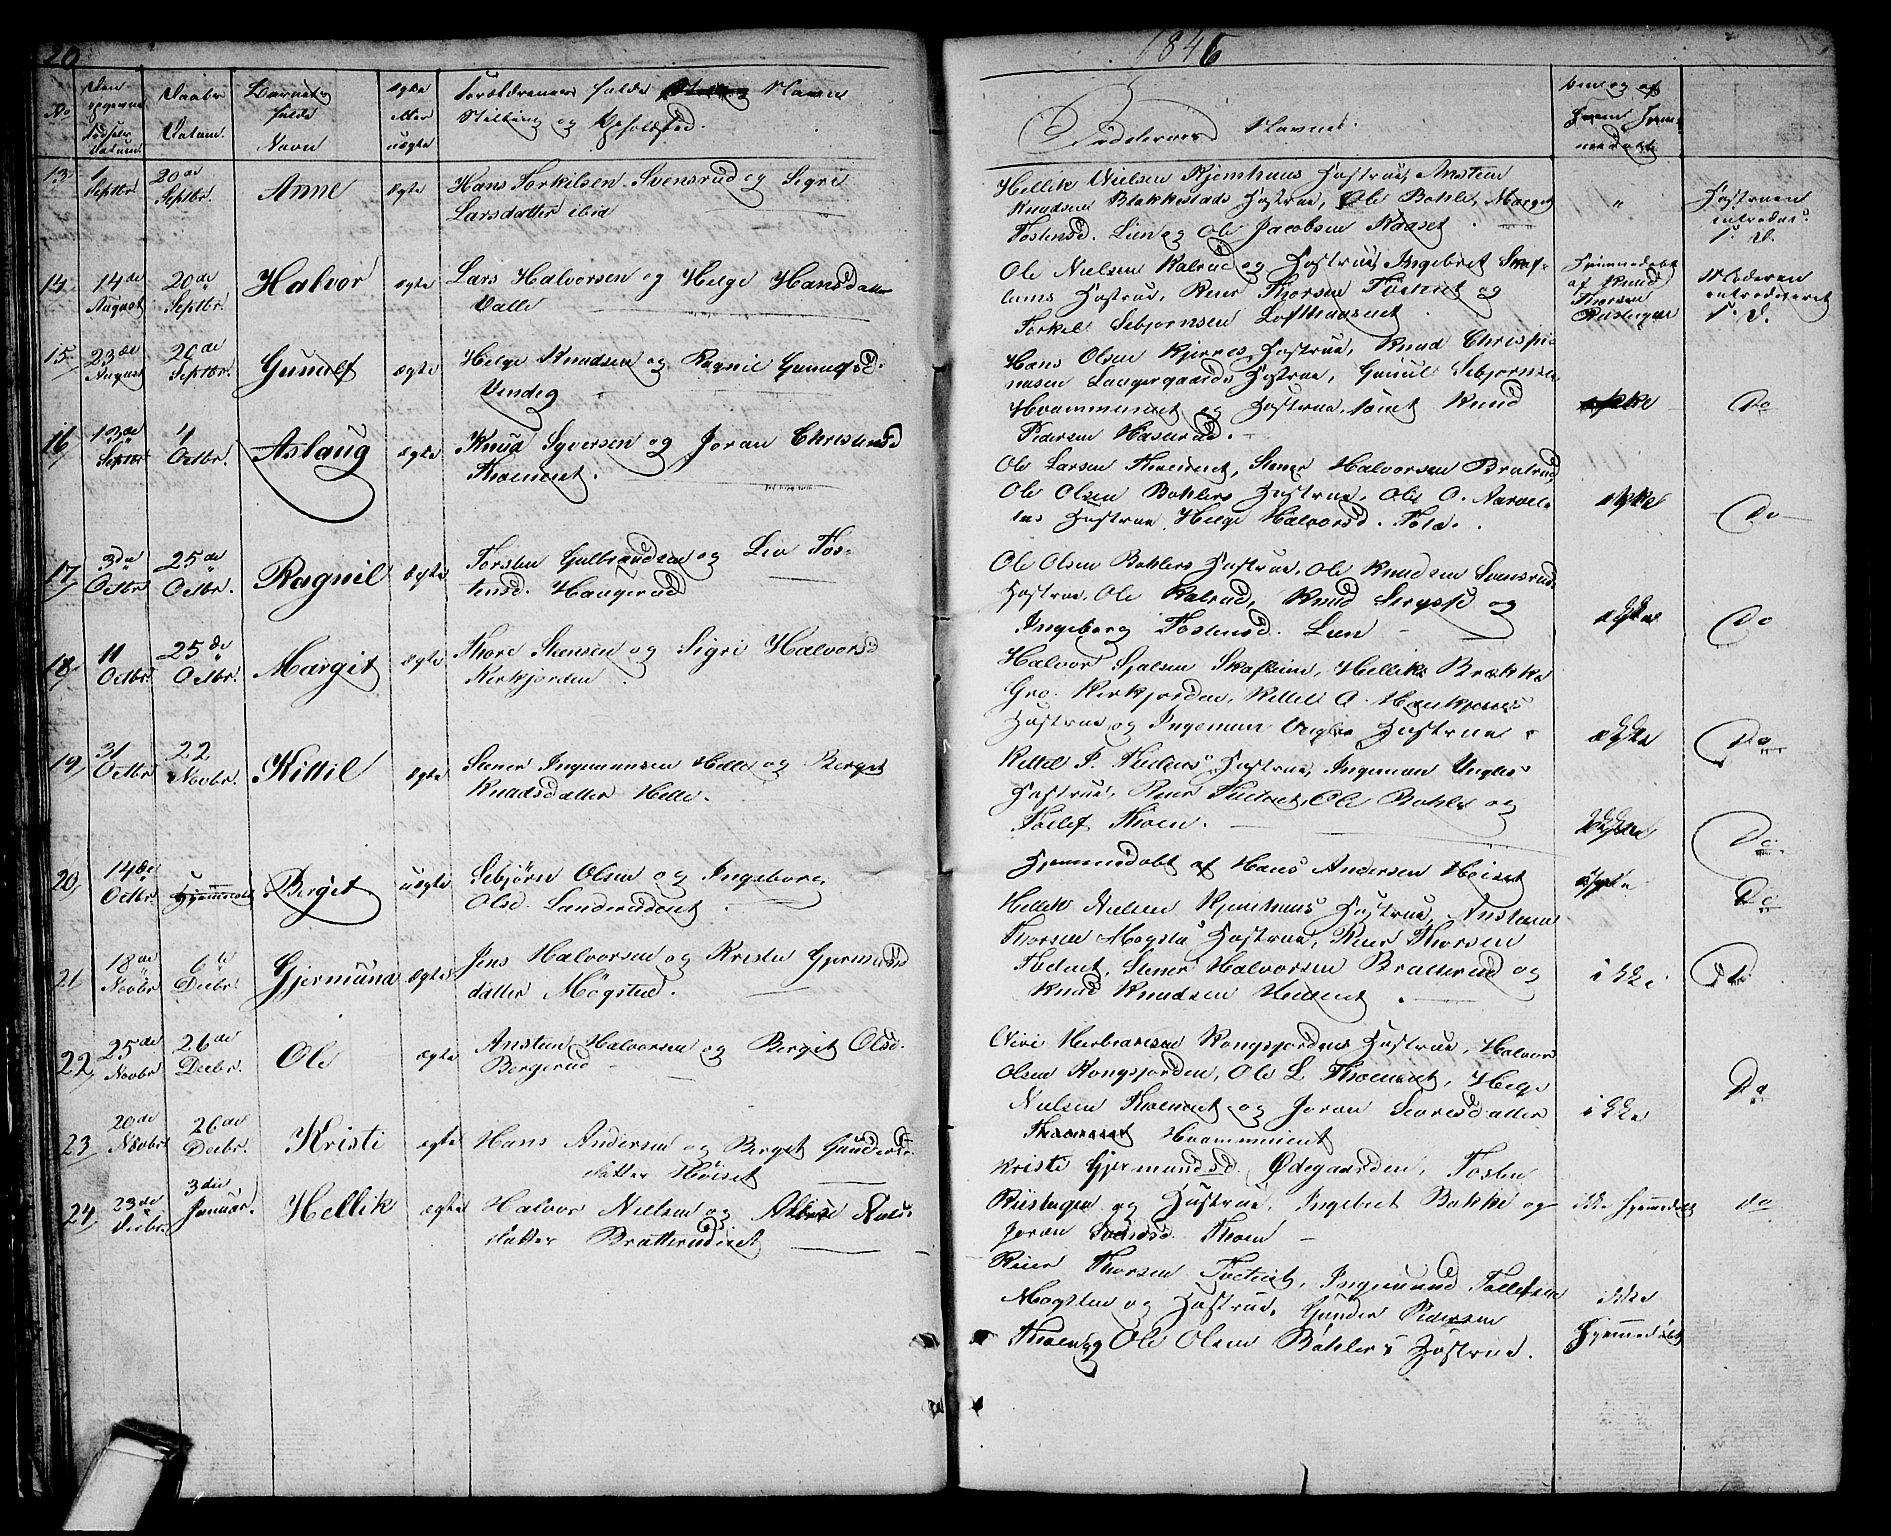 20
No
Den opgivne Fødsels Datum
Daabs Datum
Barnets fulde Navn
Ægte eller uægte
Forældrenes fulde Navn
Stilling og Opholdsted.
13
1 Septbr
20de Septbr.
Anne
Ægte
Hans Torkilsen Svensrud og Sigri
Larsdatter ibid
14
14de August
20de Septbr.
Halvor
ægte
Lars Halvorsen og Helge Hansdatter
Dalle
15
23de August
20de Septbr.
Gunulf
ægte
Helge Knudsen og Ragnil Gunulfsd.
Vindeg
16
13de Septbr
4 Octbr.
Aslaug
ægte
Knud Syversen og Joran Christensd
Thoeneiet.
17
3de Octbr
25de Octbr.
Ragnil
Ægte
Torsten Gulbrandsen og Liv Tos-
tensd. Haugerud
18
11 Octbr
25de Octbr.
Margit
ægte
Thore Steensen og Sigri Halvorsd
Kirkjorden
19
31 Octbr
22 Novbr.
Kittil
ægte
Stener Ingemunsen Helle og Berget
Knudsdatter Helle.
20
14de Octbr
Hjemmedøbt
Berget
uægte
Sebjörn Olsen og Ingeborg
Olsd. Sanderudeiet
21
18de Novbr
6te Decbr.
Gjermund
ægte
Jens Halvorsen og Kristi Gjermunds
datter Mogsteu.
22
25de Novbr
26de Decbr.
Ole
ægte
Ansteen Halvorsen og Berget Olsd.
Bergerud
23
20de Novbr
26de Decbr.
Kristi
ægte
Hans Andersen og Berget Gundersd-
datter Höiset
24
23de Decbr.
3die Januar.
Hellik
ægte
Halvor Nielsen og Niels-
datter Bratterudeiet
1846
Faddernes Navne.
Hellik Nielsen Kjemhuus Hustrue, Ansteen
Knudsen Blakkestads Hustrue, Ole Bøhle, Margit
Tostensd. Lien og Ole Jacobsen Kaaset
"
Hustruen introduc.
Ole Nielsen Kalrud og Hustrue, Ingebret Skaf-
lems Hustrue, Reier Thorsen Tosteiet og
Torkel Sebjornsen Lofthuuseiet
Hjemmedøbt af Knud Thorsen Ruslegaar
Moderen introduceret
Hans Olsen Kjernes Hustrue, Knud Chrispi-
nusen Langergaards Hustrue, Gunul Sebjornsen
Hvammeneiet og Hustrue, samt Knud
Pedersen Haserud.
ikke
Do
Ole Larsen Thoeneiet, Stener Halvorsen Bratrud,
Ole Olsen Bøhlers Hustrue, Ole O. Aarvel-
tas Hustrue Helge Halvorsd. Foss.
ikke
Do
Ole Olsen Bøhlers Hustrue, Ole Knudsen Svensrud
Hustrue, Ole Kalrud, Knud og
Ingeborg Tostensd. Lien
ikke
Do
Halvor Skaflem, Hellik Brække
Gro Kirkjorden, Kittil O.
Hustrue og Ingemun Vegles Hustrue
ikke
Do
Kittil P. Hustrue, Ingemun Vegles
Hustrue, Reier Ole Bøhle og
Tollef Thoen.
ikke
Do
Hjemmedøbt af Hans Andersen Höiset
ikke
Do
Hellik Nielsen Kjemhuus Hustrue, Ansteen
Thorsen Mogsteu Hustrue, Reier Thorsen
Stener Halvorsen Bratterud og
Knud Knudsen
ikke
Do
Herbransen Kongsjordens Hustrue, Halvor
Olsen Kongsjorden, Ole L. Thoeneiet, Helge
Nielsen Thoeneiet og Joran Siversdatter
Thoeneiet Hvammeneiet
ikke
Do
Kristi Gjermundsd. Ødegaarden, Tosten
Ruslegen og Hustrue, Ingebret Bakke og
Joran Svendsd. Thoen
ikke Hjemmedøbt
do
Reier Thorsen Ingemund Tollefsen
Mogsteu og Hustrue, Gunder Pedersen
Thoen og Ole Olsen Bøhlers Hustrue.
ikke
Hjemmedøbt